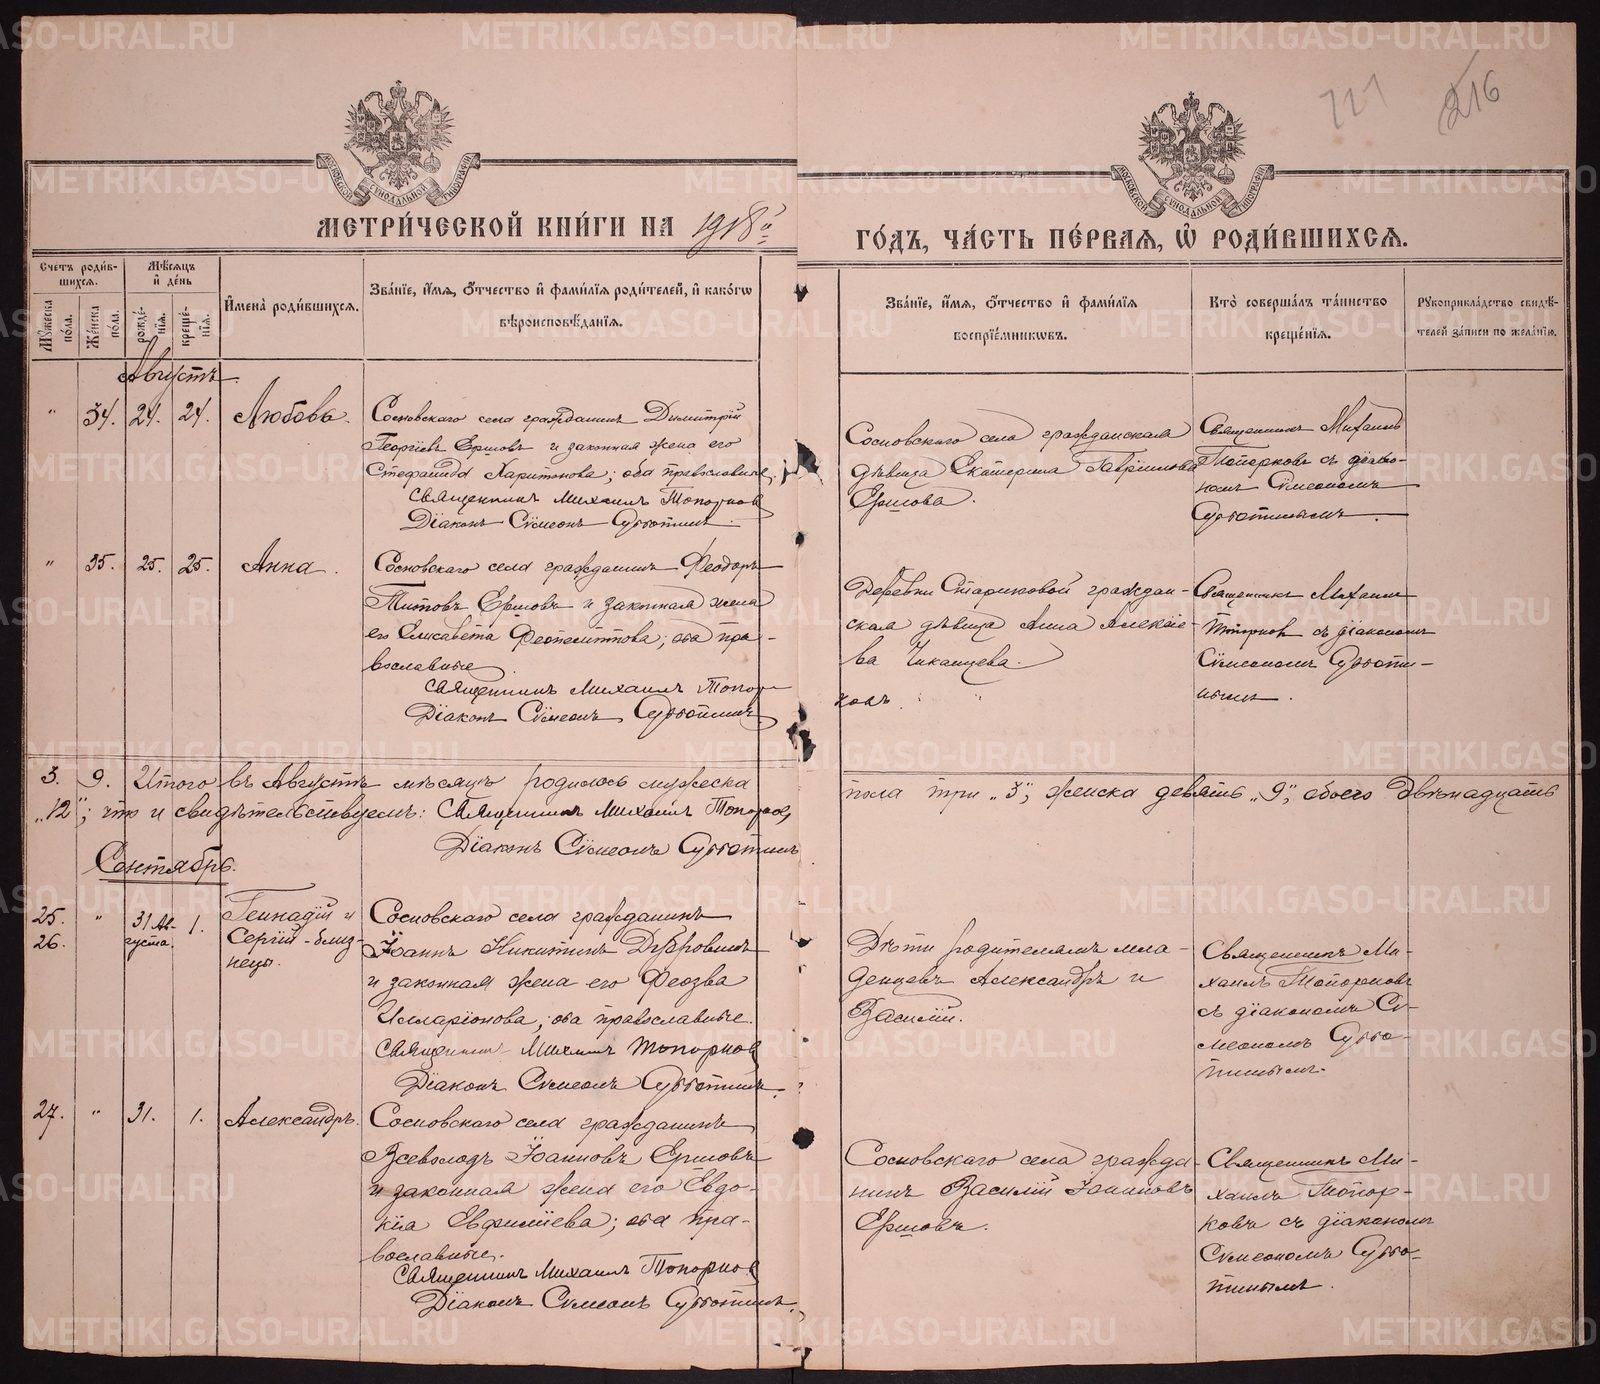 727
216
МЕТРИ́ЧЕСКОЙ КНИ́ГИ НА 1918й
ГО́ДЪ, ЧА́СТЬ ПЕ́РВАЯ, Ѡ РОДИ́ВШИХСЯ.
Счетъ роди́вшихся.
Му́жеска по́ла.
Же́нска по́ла.
Мѣ́сяцъ и́ де́нь
рожде́нія.
креще́нія.
И́мена̀ роди́вшихся.
Зва́нїе, и́мя, ѻ́тчество и́ фами́лїя роди́телей, и́ како́гѡ
вѣроисповѣ́данїя.
Зва́нїе, и́мя, ѻ́тчество и́ фами́лїя
воспрїе́мникѡвъ.
Кто̀ соверша́лъ та́инство
креще́нїя.
Рукоприкла́дство свидѣ́-
телей за́писи по жела́нїю.
Августъ
" 34. 24. 24. Любовь.
Сосновскаго села гражданинъ Димитрій
Георгіевъ Ершовъ и законная жена его
Стефанида Харитонова; оба православные
Священникъ Михаилъ Топорковъ
Діаконъ Сѵмеонъ Субботинъ.
Сосновскаго села гражданская
дѣвица Екатерина Гавріилова
Ершова.
Священникъ Михаилъ
Топорковъ съ діако-
номъ Сѵмеономъ
Субботинымъ.
" 35. 25. 25. Анна.
Сосновскаго села гражданинъ Феодоръ
Титовъ Ершовъ и законная жена
его Елисавета Феопемптова; оба пра-
вославные
Священникъ Михаилъ Топор-
ковъ.
Діаконъ Сѵмеонъ Субботинъ
Деревни Стариковой граждан-
ская дѣвица Анна Алексіе-
ва Чиканцева.
Священникъ Михаилъ
Топорковъ съ діакономъ
Сѵмеономъ Субботи-
нымъ.
3. 9. Итого въ Августѣ мѣсяцѣ родилось мужеска
пола три „3", женска девять „9", обоего двѣнадцать
„12"; что и свидѣтельствуемъ: Священникъ Михаилъ Топорковъ
Діаконъ Сѵмеонъ Субботинъ
Сентябрь.
25. " 31 Ав- 1. Геннадій и
26. густа. Сергій - близ-
нецы.
Сосновскаго села гражданинъ
Іоаннъ Никитинъ Дубровинъ
и законная жена его Феозва
Илларіонова; оба православные.
Священникъ Михаилъ Топорковъ
Діаконъ Сѵмеонъ Субботинъ.
Дѣти родителямъ мла-
денцевъ Александръ и
Василій.
Священникъ Ми-
хаилъ Топорковъ
съ діакономъ Сѵ-
меономъ Суббо-
тинымъ.
27. " 31. 1. Александръ.
Сосновскаго села гражданинъ
Всеволодъ Іоанновъ Ершовъ
и законная жена его Евдо-
кіа Евфиміева; оба пра-
вославные.
Священникъ Михаилъ Топорковъ
Діаконъ Сѵмеонъ Субботинъ.
Сосновскаго села гражда-
нинъ Василій Іоанновъ
Ершовъ.
Священникъ Ми-
хаилъ Топор-
ковъ съ діакономъ
Сѵмеономъ Суббо-
тинымъ.
METRIKI.GASO-URAL.RU